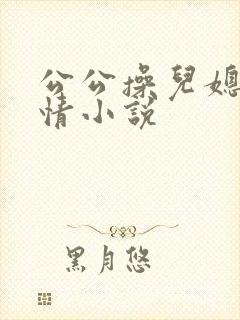 公公操兒媳
情小說
黑月悠